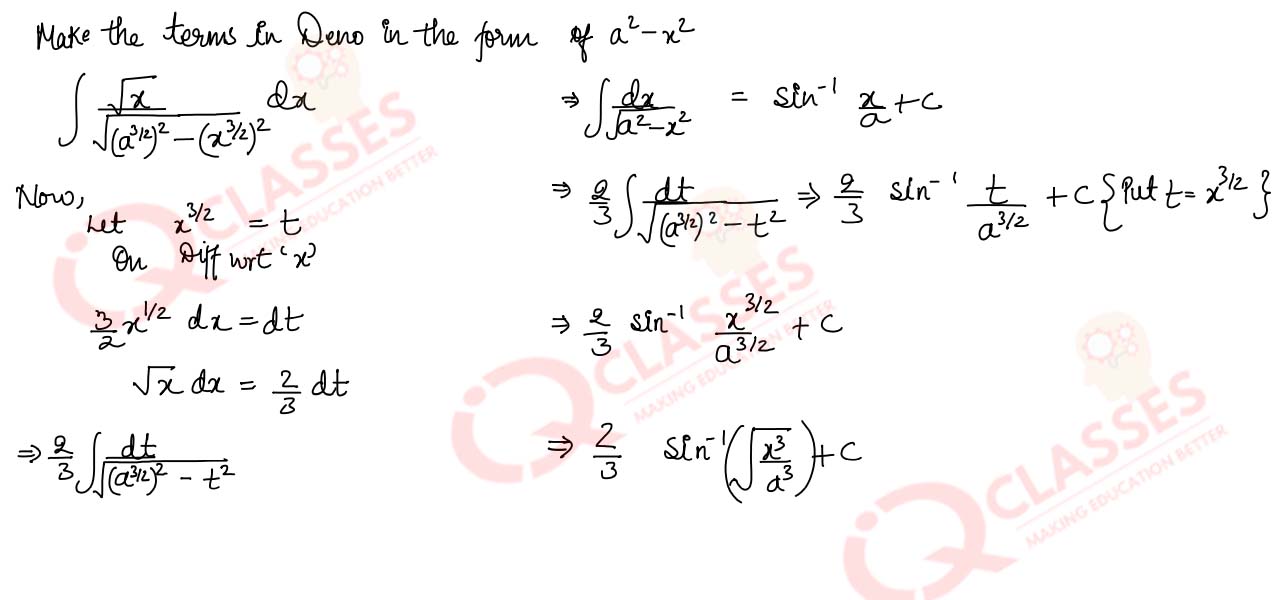 Make the terms in Deno in the form of a² − x²
∫ √x / √((a^{3/2})² − (x^{3/2})²) dx
Now,
Let x^{3/2} = t
On Diff wrt 'x'
3/2 x^{1/2} dx = dt
√x dx = 2/3 dt
⇒ 2/3 ∫ dt / √((a^{3/2})² − t²)
⇒ ∫ dx / √(a² − x²) = Sin⁻¹ x/a + C
⇒ 2/3 ∫ dt / √((a^{3/2})² − t²) ⇒ 2/3 sin⁻¹ t / a^{3/2} + C {Put t = x^{3/2}}
⇒ 2/3 sin⁻¹ x^{3/2} / a^{3/2} + C
⇒ 2/3 Sin⁻¹(√(x³/a³)) + C
iQ CLASSES
MAKING EDUCATION BETTER
iQ CLASSES
MAKING EDUCATION BETTER
iQ CLASSES
MAKING EDUCATION BETTER